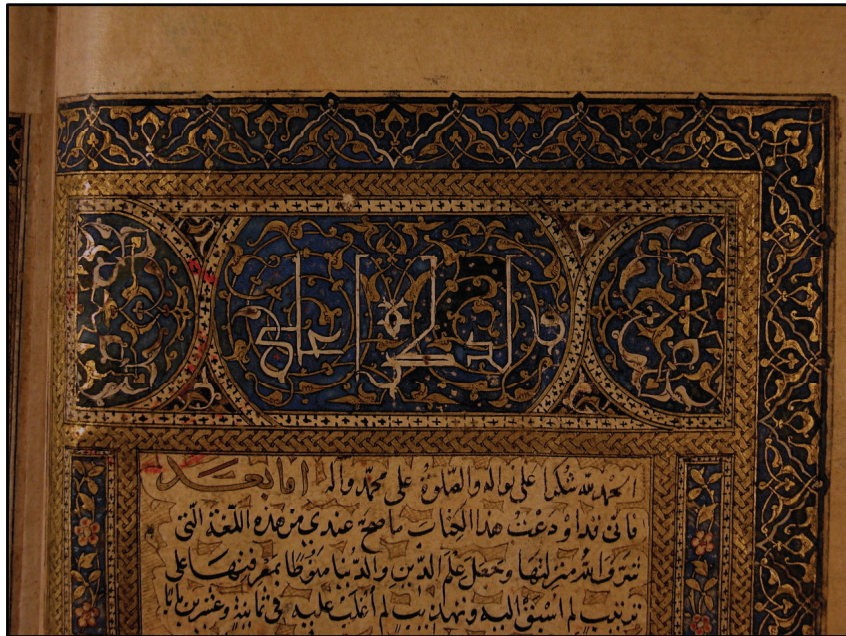 الحمد لله شكرا على نواله والصلوة على محمد وآله اما بعد
فانى قد اودعت هذا الكتاب ما صح عندى من هذه اللغة التى
شرف الله منزلتها وجعل علم الدين والدنيا منوطا بمعرفتها على
ترتيب لم اسبق اليه وتهذيب لم أغلب عليه فى ثمانية وعشرين بابا